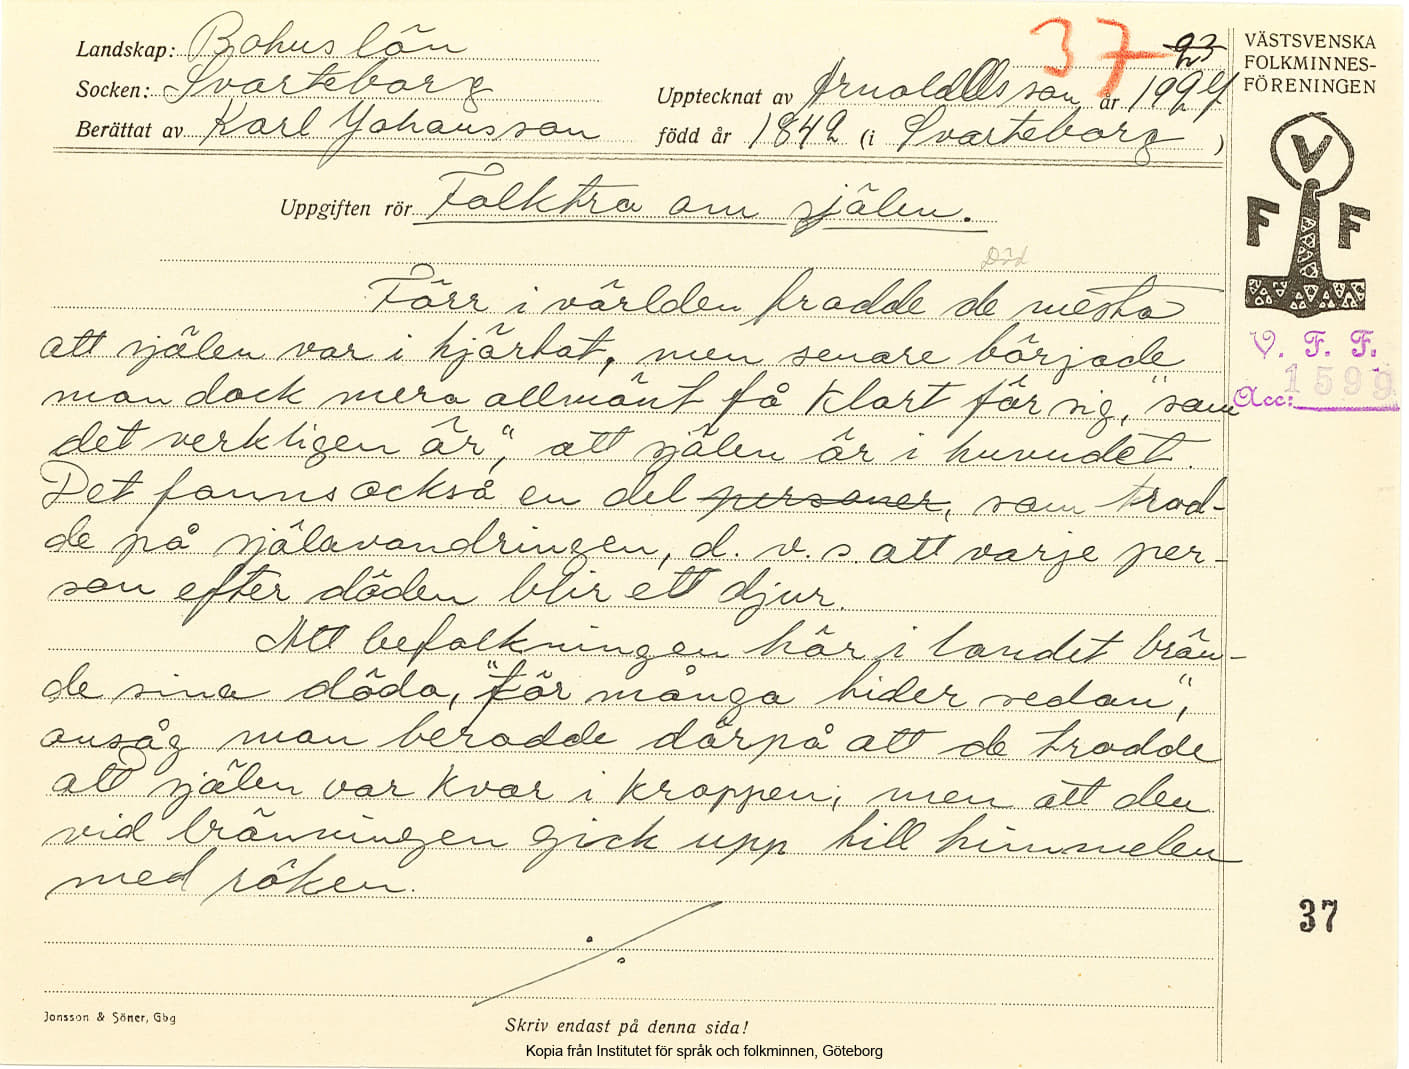 Landskap: Bohuslän
Socken: Svarteborg
Berättat av Karl Johansson
37
23
Upptecknat av Arnold Olsson år 1924
född år 1842 (i Svarteborg )
VÄSTSVENSKA
FOLKMINNES-
FÖRENINGEN
V
F F
Uppgiften rör Folktro om själen.
Död
Förr i världen trodde de mesta
att själen var i hjärtat, men senare började
man dock mera allmänt få klart för sig, "som
det verkligen är", att själen är i huvudet.
Det fanns också en del personer, som trod-
de på själavandringen, d. v. s. att varje per-
son efter döden blir ett djur.
Att befolkningen här i landet brän-
de sina döda, "för många tider sedan",
ansåg man berodde därpå att de trodde
att själen var kvar i kroppen, men att den
vid bränningen gick upp till himmelen
med röken.
V. F. F.
Acc: 1599
37
Jonsson & Söner, Gbg
Skriv endast på denna sida!
Kopia från Institutet för språk och folkminnen, Göteborg